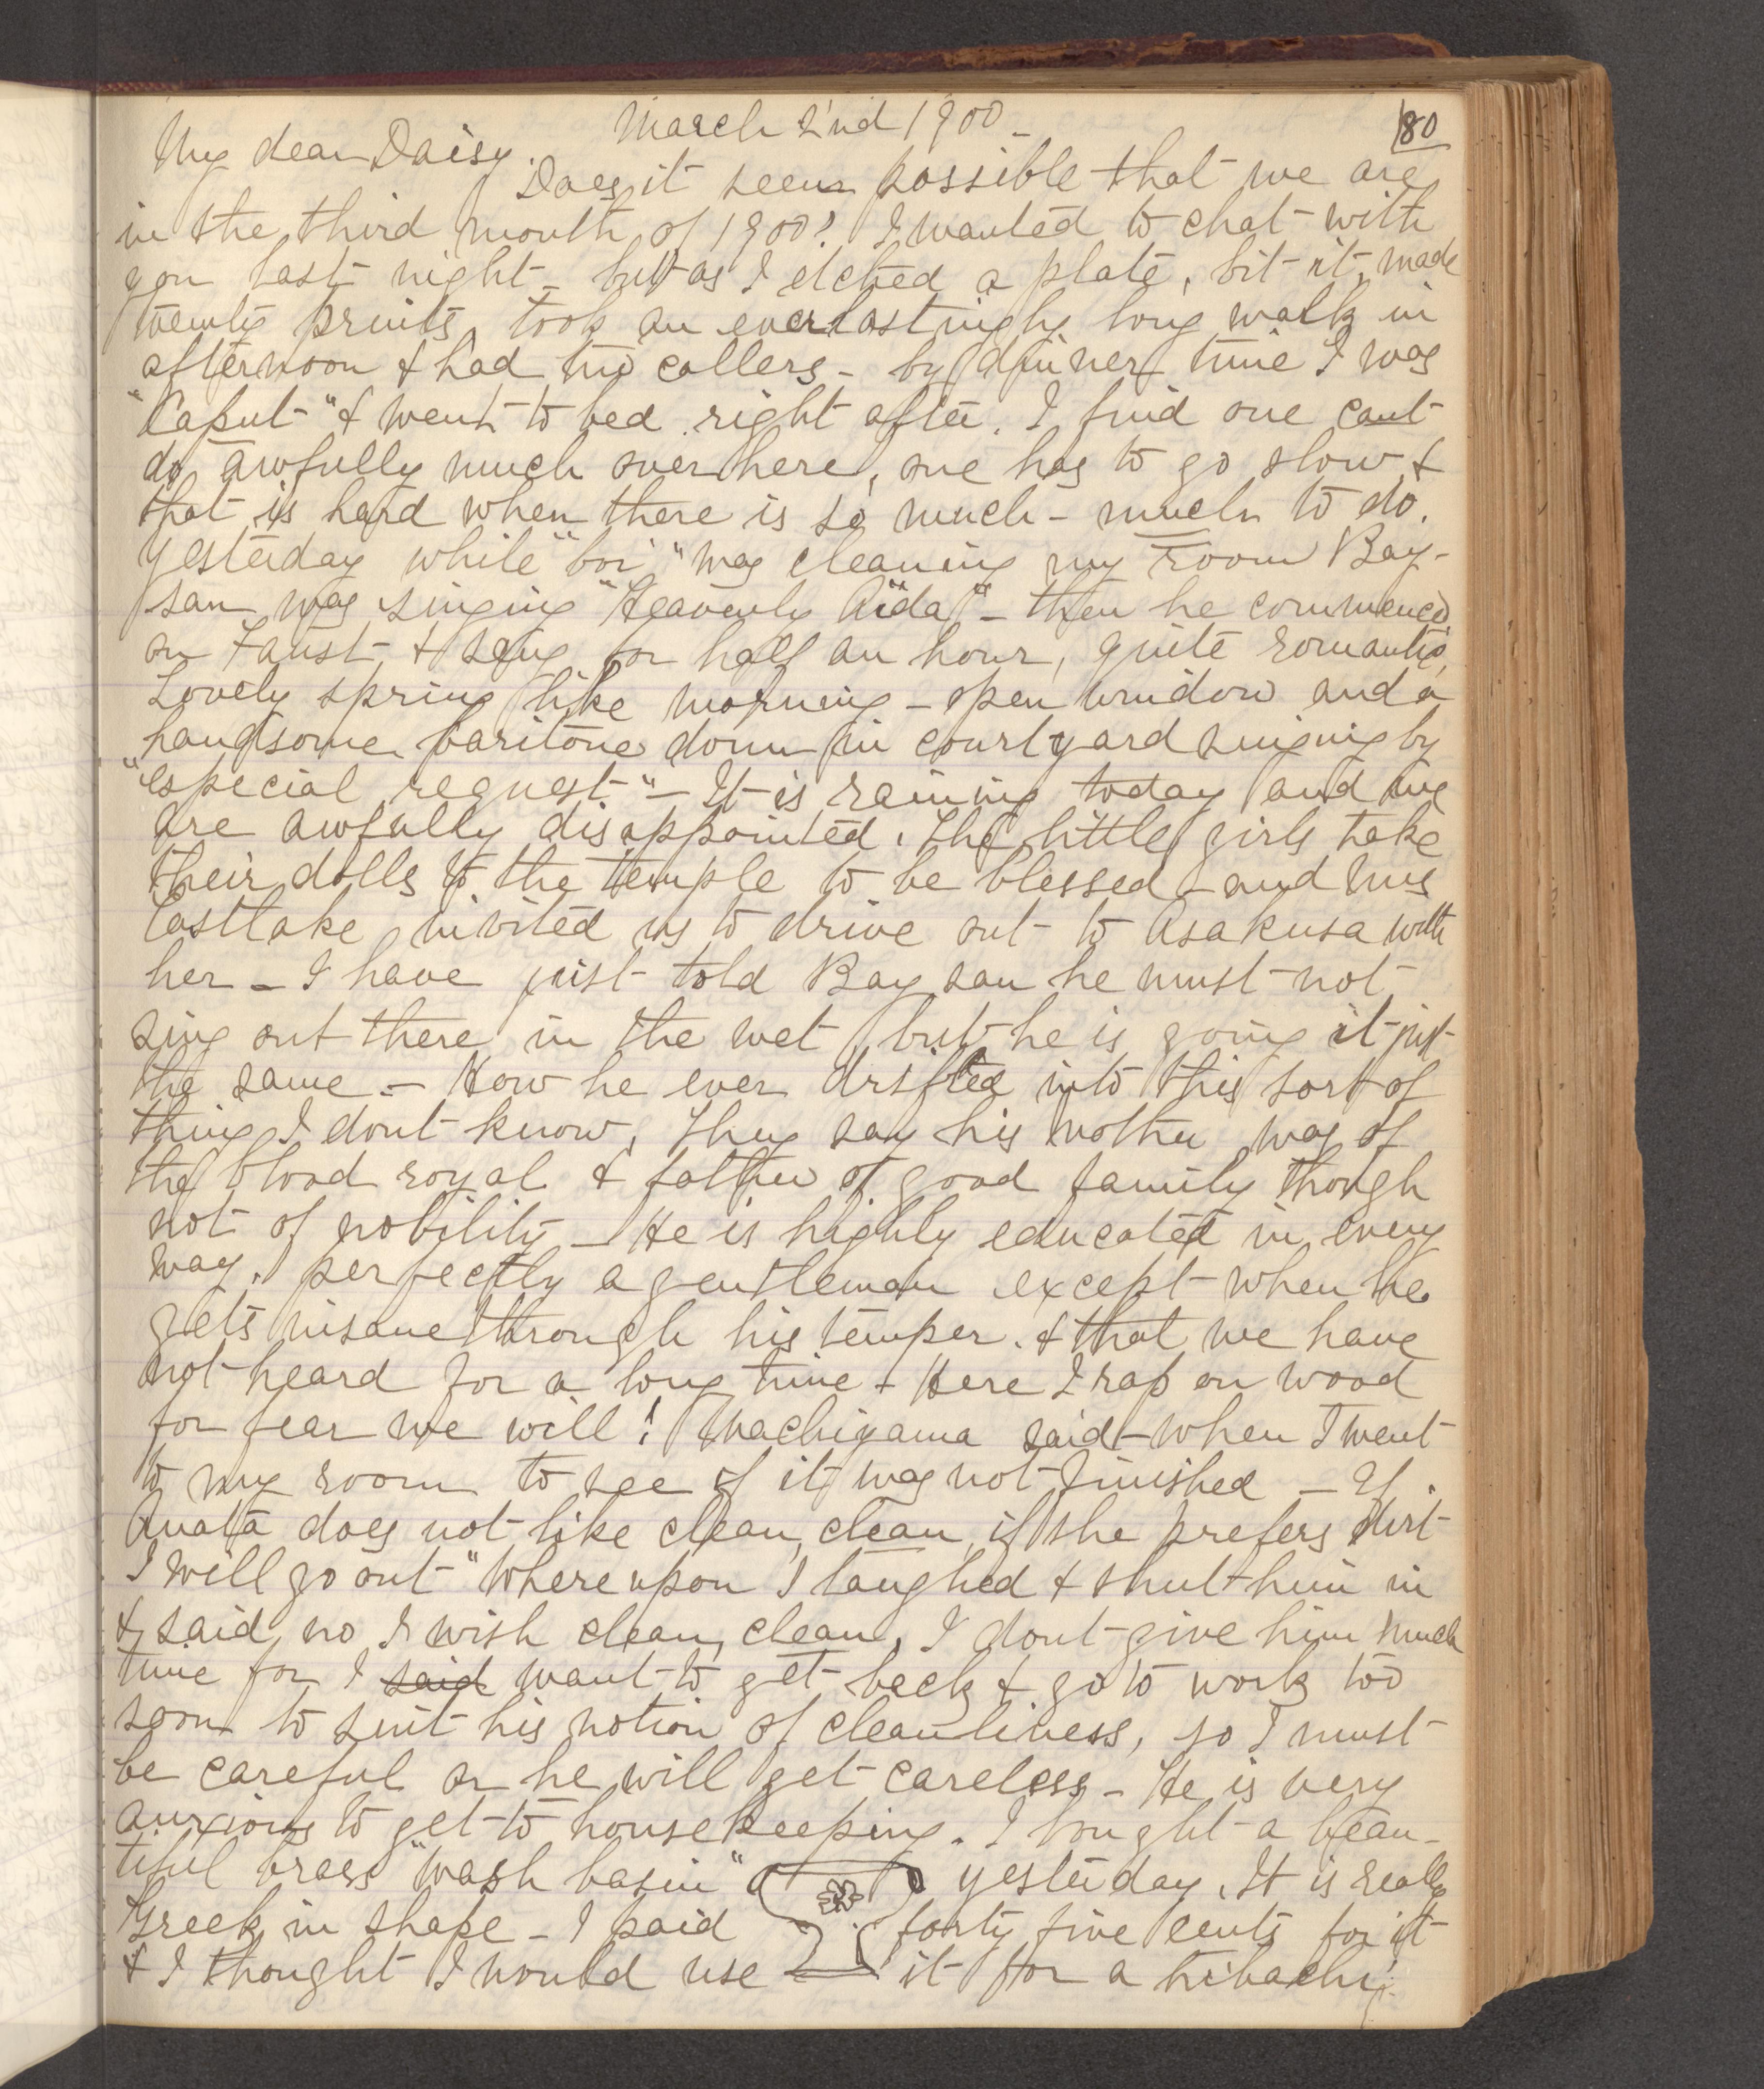 March 2nd 1900 - 180
My dear Daisy.
Does it seem possible that we are
in the third month of 1900? I wanted to chat with
you last night - but as I etched a plate, bit it, made
twenty prints, took an everlastingly long walk in
afternoon & had two callers - by dinner time I was
"Caput" & went to bed right after. I find one cant
do awfully much over here, one has to go slow &
that is hard when there is so much - much to do.
Yesterday while "boi" was cleaning my room Bay-
san was singing "Heavenly Aïda" - then he commenced
on Faust, & sang for half an hour, quite romantic,
Lovely spring like morning - open window and a
handsome baritone down in courtyard singing by
"especial request" - It is raining today and we
are awfully disappointed. The little girls take
their dolls to the temple to be blessed - and Mrs
Eastlake invited us to drive out to Asakusa with
her - I have just told Bay san he must not
sing out there in the wet, but he is going it just
the same - How he ever drifted into this sort of
thing I dont know, They say his mother was of
the blood royal & father of good family though
not of nobility - He is highly educated in every
way. perfectly a gentleman except when he
gets insane through his temper. & that we have
not heard for a long time - Here I rap on wood
for fear we will! Machiyama said when I went
to my room to see if it was not finished - If
Anata does not like clean, clean, if she prefers dirt
I will go out" Whereupon I laughed & shut him in
& said, no I wish clean, clean, I dont give him much
time for I said want to get back & go to work too
soon to suit his notion of cleanliness, so I must
be careful or he will get careless - He is very
anxious to get to housekeeping. I bought a beau-
tiful brass "wash basin" yesterday. It is really
Greek in shape - I paid forty five cents for it
& I thought I would use it for a hibachi.